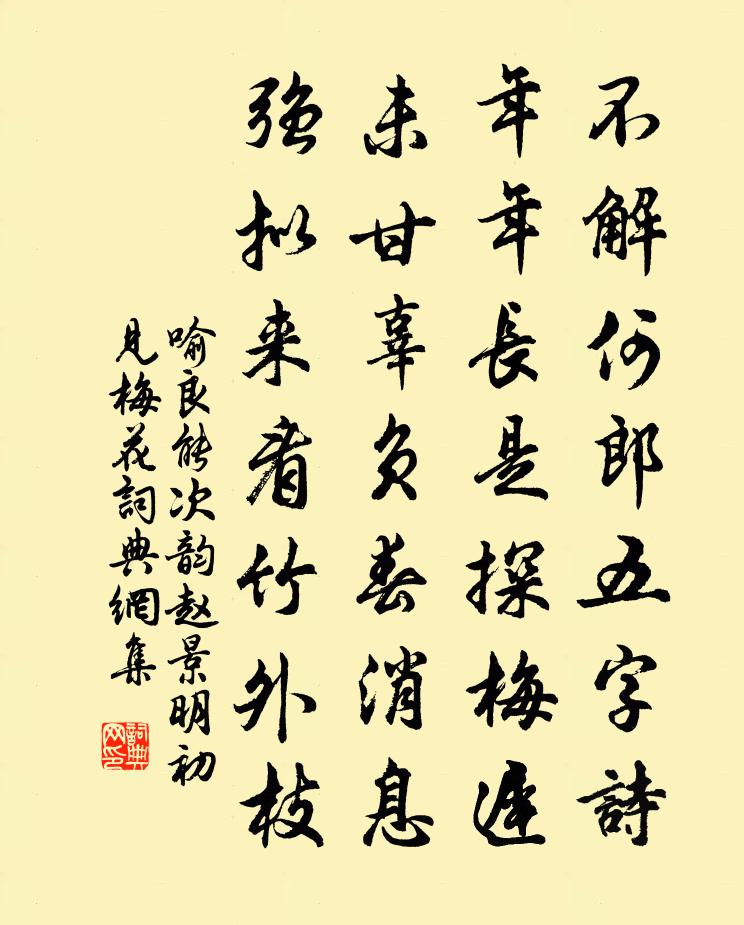 不解何郎五字詩
年年長是探梅遲
未甘辜負春消息
強拟来看竹外枝
喻良能次韵赵景明初
見梅花詞典網集
詞典网印